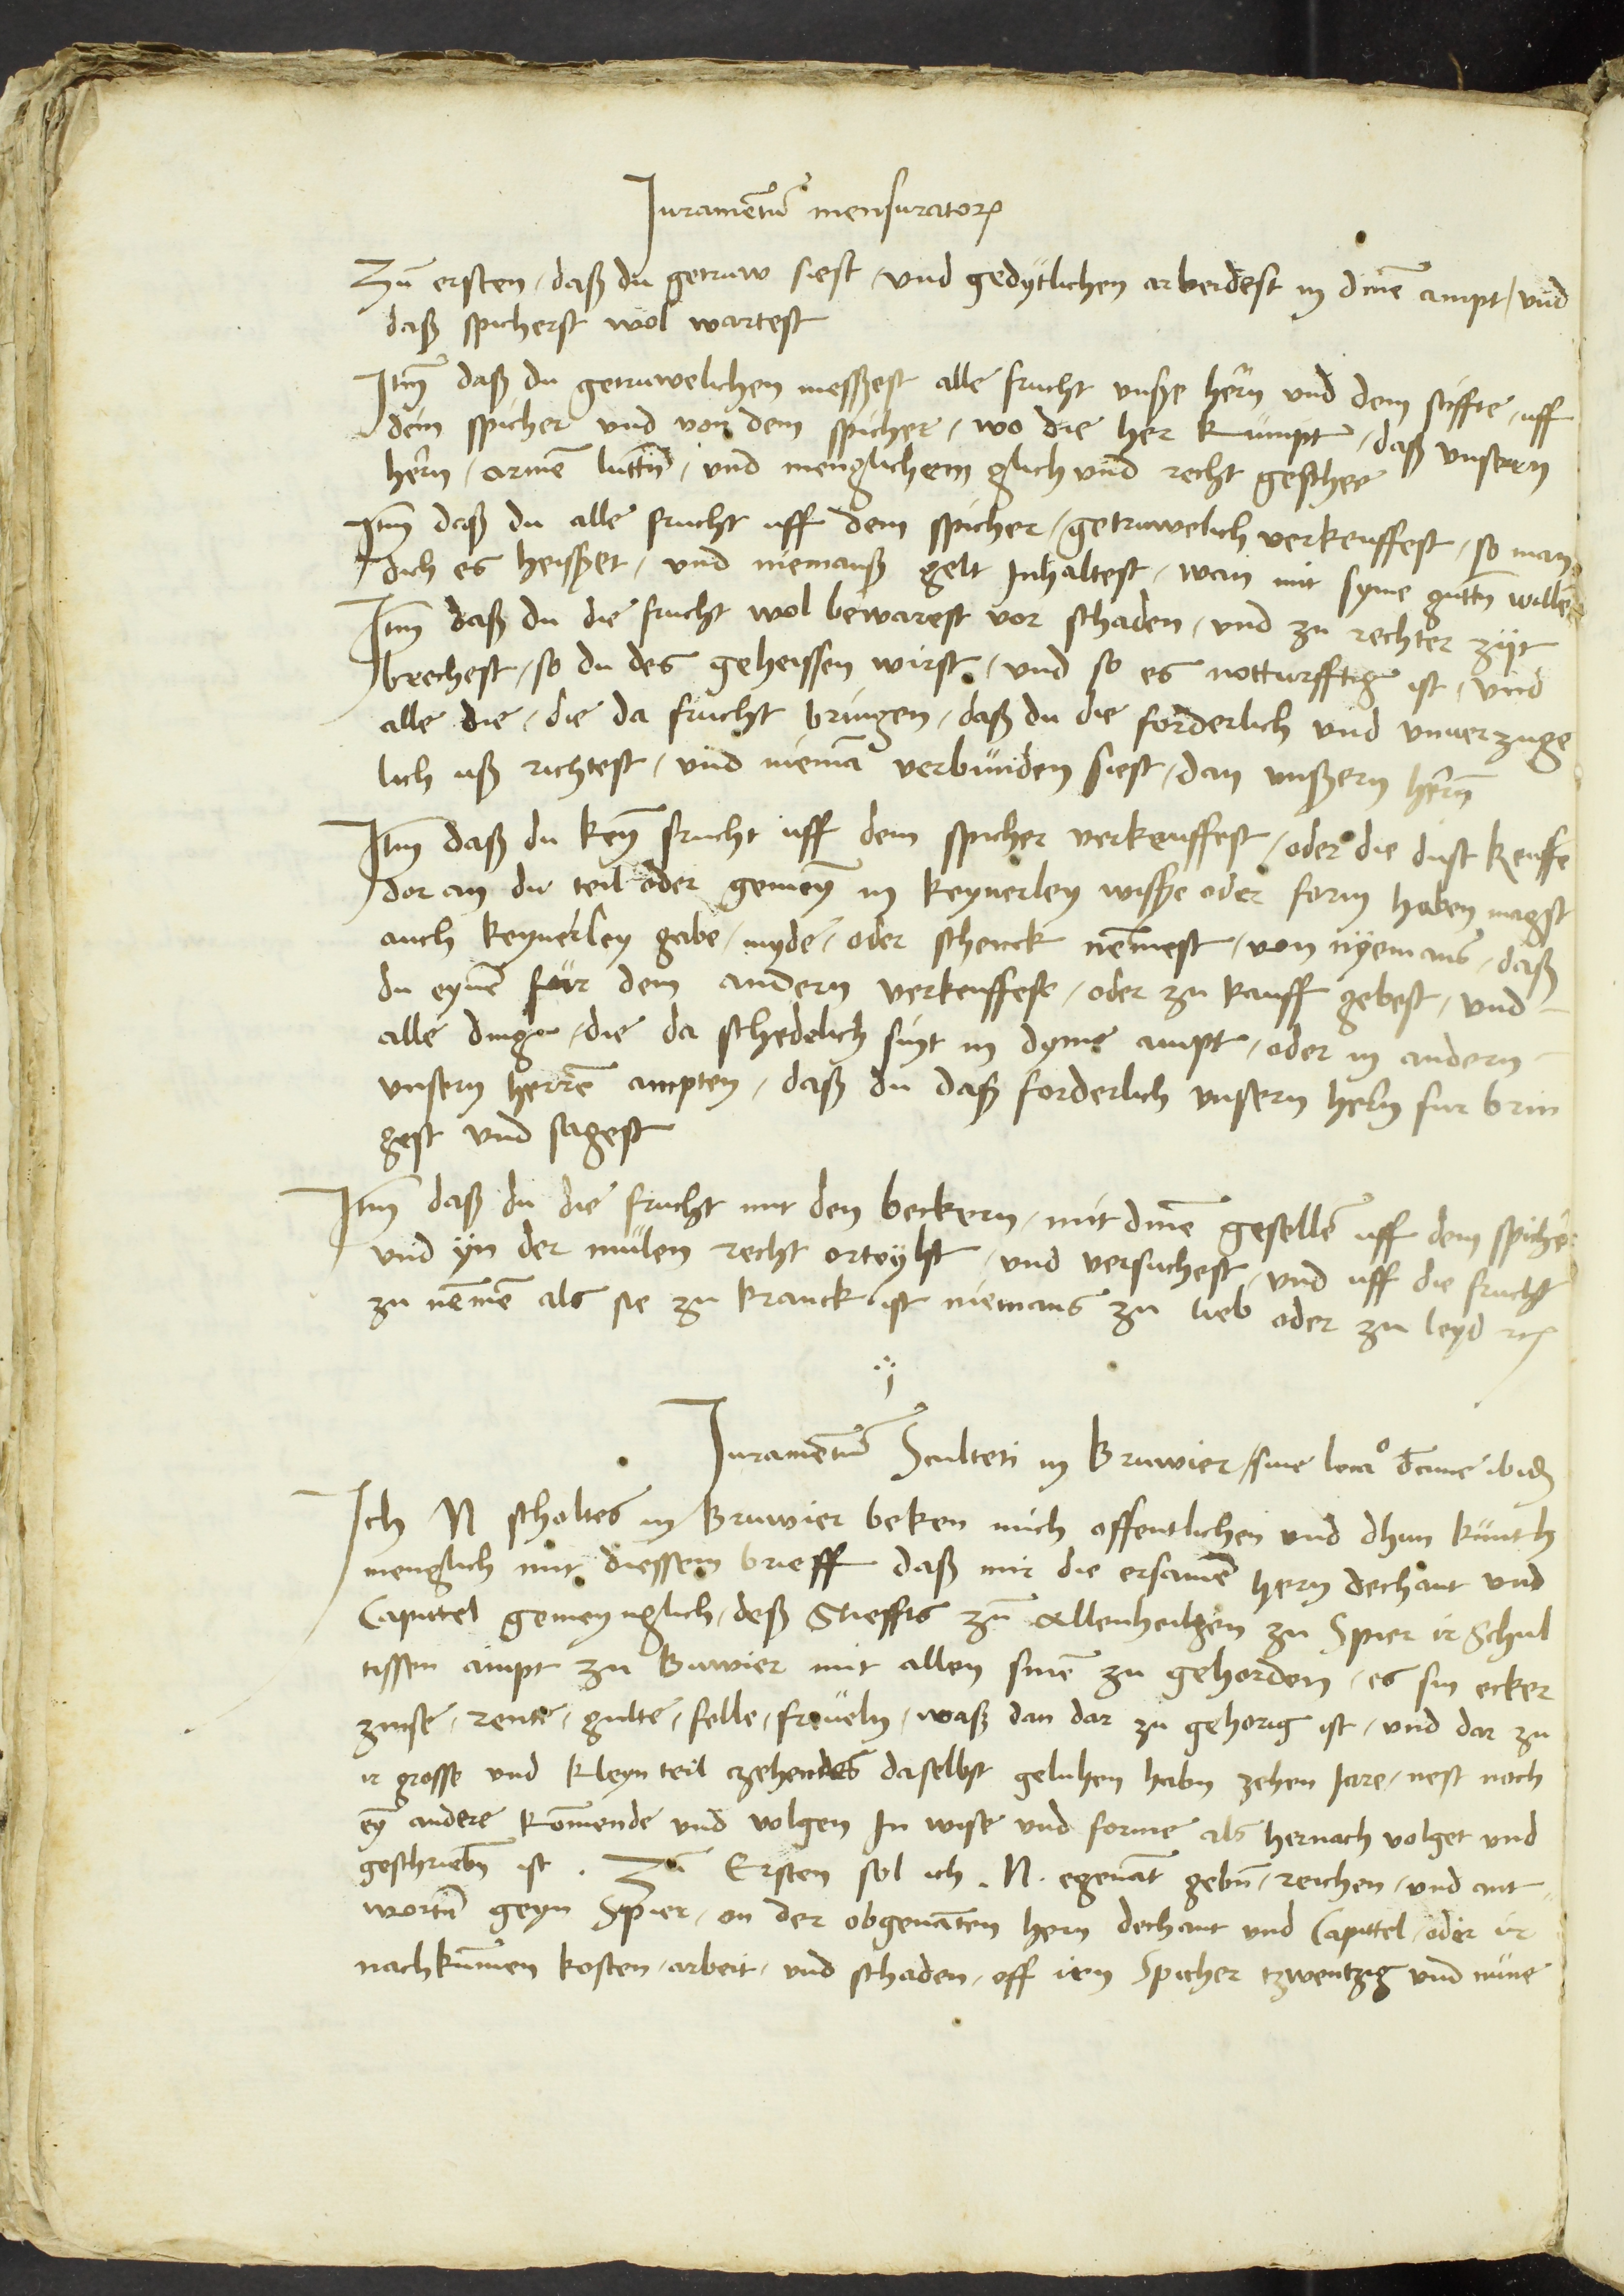 Juramentū mensurator
Zū ersten / daß du getruw siest / vnd gedÿtlichen arbeidest in dinē ampt / vnd
daß spicherst wol wartest
Itm̄ daß du getruwelichen messzest alle frucht vnßre hern̄ vnd dem stiffte / uff
dem spicher vnd von dem spicher / wo die her kumpt / daß vnsern
hern̄ / armē luttn̄ / vnd menglichem glich vnd recht geschee
Itm̄ daß du alle frucht uff dem spicher / getruwelich verkeuffest / so man
dich es heisßet / vnd niemanß gelt Inhaltest / wan mit syme guttn̄ willē
Itm̄ daß du die frucht wol bewarest vor schaden / vnd zu rechter zÿt
brechest / so du des geheissen wirst / vnd so es notturfftig ist / vnd
alle die / die da frucht bringen / daß du die forderlich vnd vnuerzuge
lich uß richtest / vnd niemā verbunden siest / dan vnßern hern̄
Itm̄ daß du keyn̄ frucht uff dem spicher verkeuffest / oder die dust keuffē
dor an du teil oder gemeyn̄ in keynerley wisße oder form haben magst
auch keynerley gabe / myde / oder schenck nēmest / von nÿemans / daß
du eynē fur dem andern verkeuffest / oder zu kauff gebest / vnd
alle ding / die da schedelich sint in dyme ampt / oder in andern
vnsern herrē ampten / daß du daß forderlich vnsern hern fur brin
gest vnd sagest
Itm̄ daß du die frucht mit den beckern / mit dinē gesellē uff dem spicher
vnd ÿn der mulen recht orteylst / vnd versuchest / vnd uff die frucht
zu nēmē als sie zu kranck ist niemans zu lieb oder zu leyd
Juramentū Sculteti in Bruwier / siue loca
Ich N scholtes in Bruwier beken mich offentlichen vnd dhun kunth
menglich mit diessem brieff daß mir die ersamē hern dechant vnd
Capittel gemeynglich / deß Stieffts zū Allenheilgen zu Spier ir Schul
tissen ampt zu Buwier mit allen sinē zu gehorden / es sin ecker
zinse / rente / gulte / felle / freueln / waß dan dar zu gehorig ist / vnd dar zu
ir grosse vnd kleyn teil zehendes daselbst geluhen habn zehen Jare / nest noch
eyn̄ andere kōmende vnd volgen In wise vnd forme als hernach volget vnd
geschriebn̄ ist . Zū Ersten sol ich . N . egenāt gebn̄ / reichen / vnd ant
wortn̄ geyn Spier / on der obgenāten hern dechant vnd Capittel / oder ir
nachkūmen kosten / arbeit / vnd schaden / off iren Spicher tzwentzig vnd nune